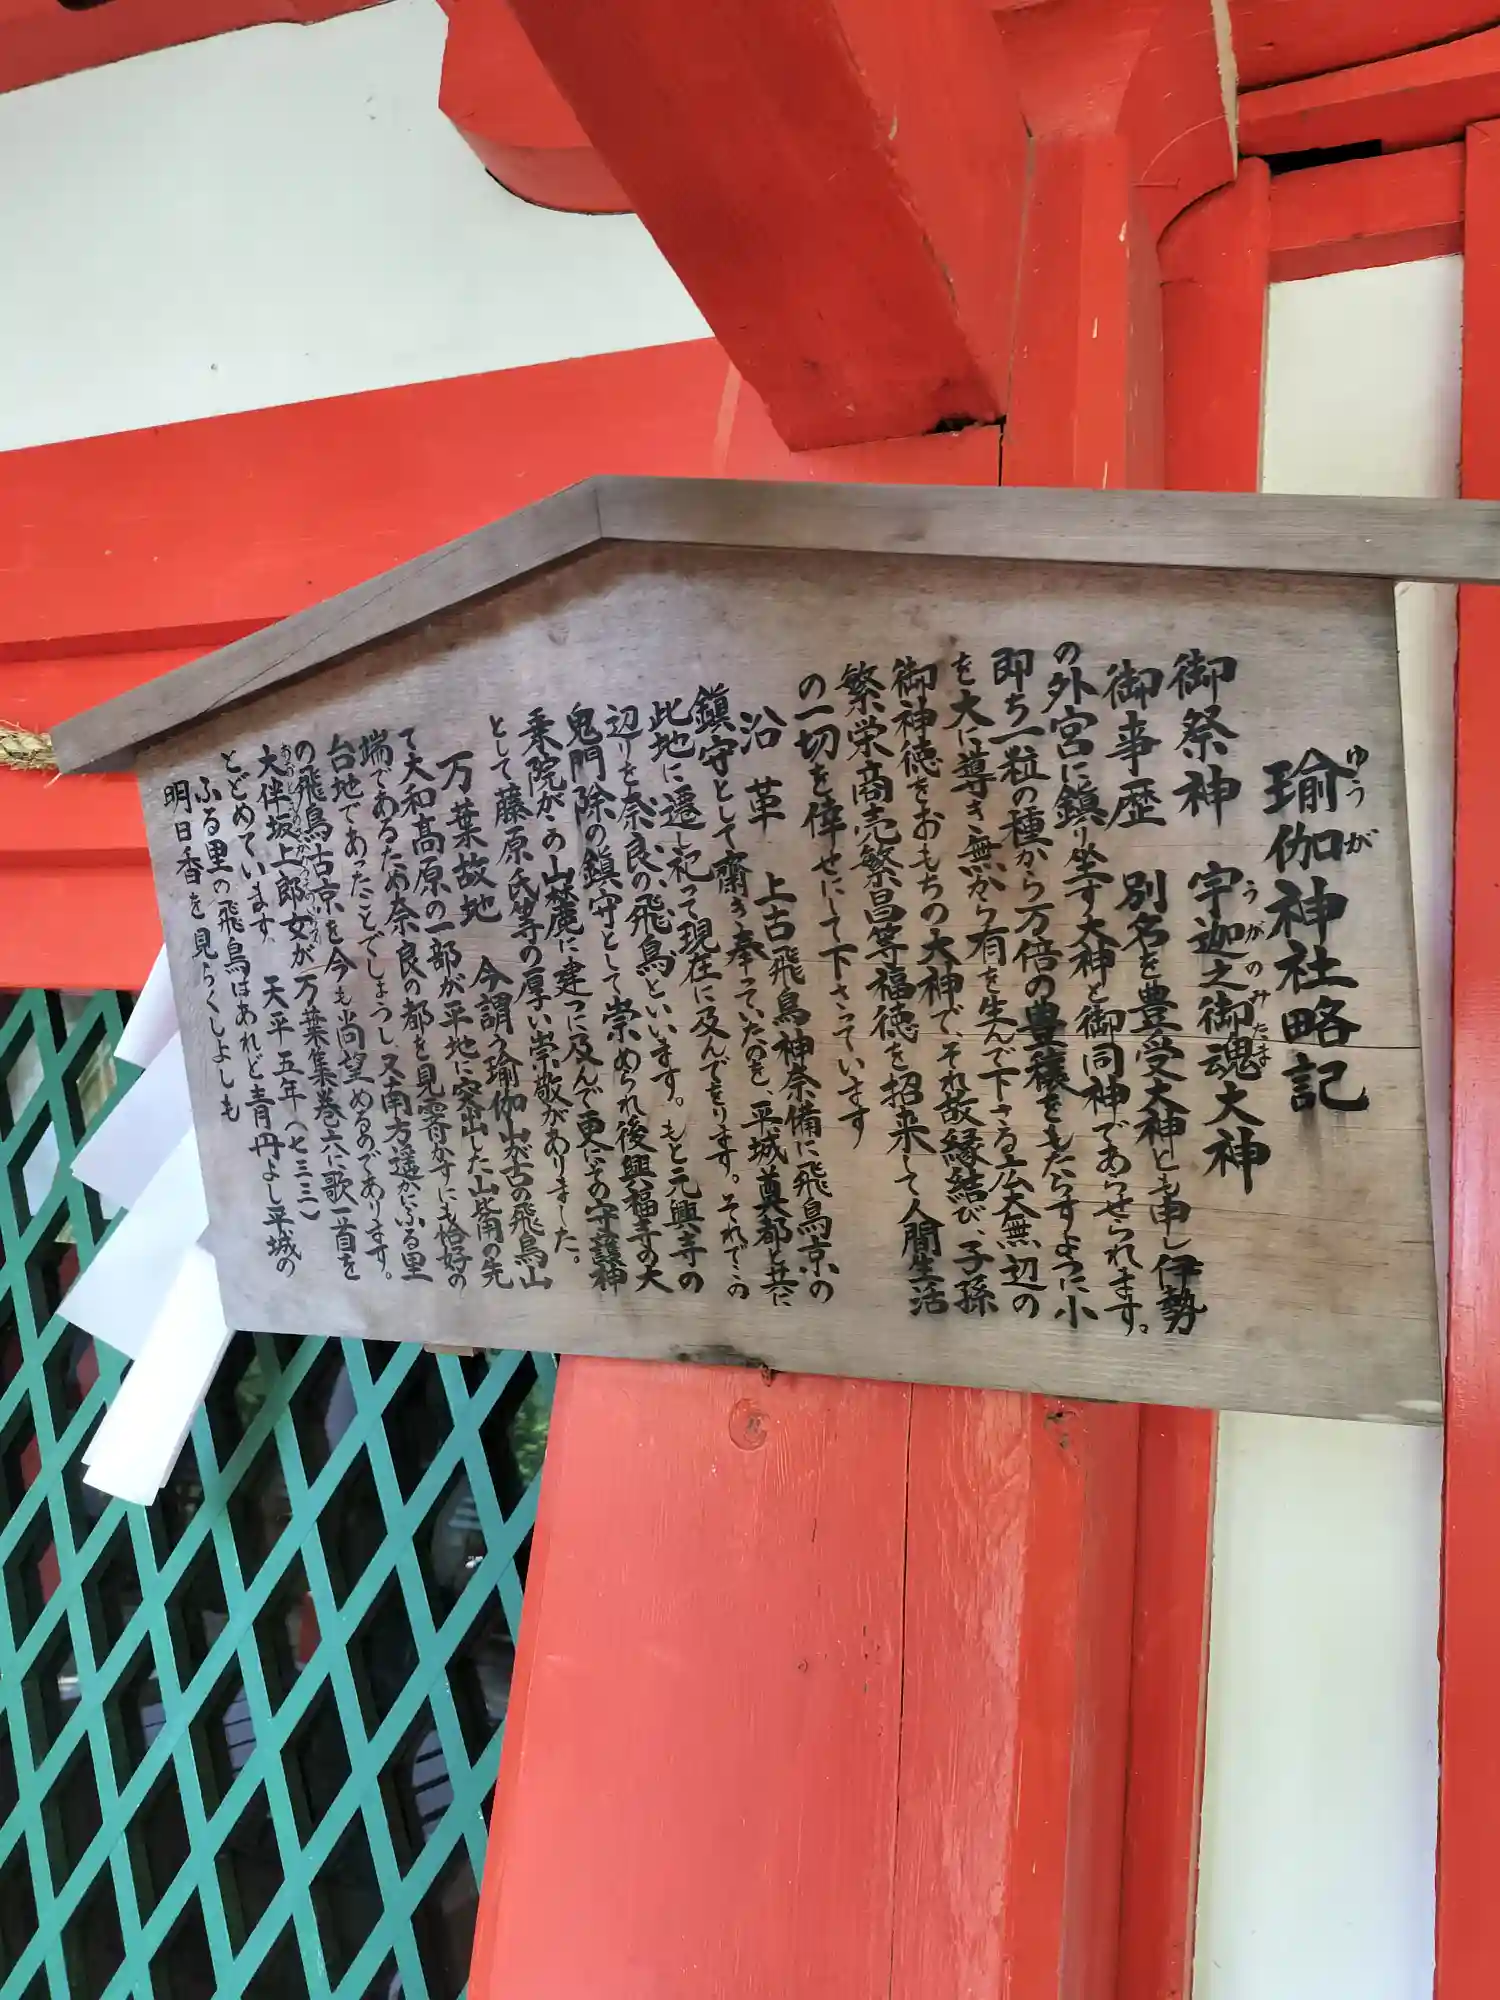 瑜伽神社略記
ゆうが
御祭神 宇迦之御魂大神
うがのみたま
御事歴 別名を豊受大神とも申し伊勢
の外宮に鎮り坐す大神と御同神であらせられます。
即ち一粒の種から万倍の豊穣をもたらすように小
を大に導き無から有を生んで下さる広大無辺の
御神徳をおもちの大神で、それ故縁結び、子孫
繁栄商売繁昌等福徳を招来して人間生活
の一切を倖せにして下さっています
沿革 上古飛鳥神奈備に飛鳥京の
鎮守として齋き奉っていたのを、平城奠都と共に
此地に遷し祀って現在に及んでをります。それでこの
辺りを奈良の飛鳥といいます。もと元興寺の
鬼門除の鎮守として崇められ後興福寺の大
乗院がこの山麓に建つに及んで更にその守護神
として藤原氏等の厚い崇敬がありました。
万葉故地 今謂う瑜伽山が古の飛鳥山
て大和高原の一部が平地に突出した山嘴の先
端であるため奈良の都を見霽かすにも恰好の
台地であったことでしょうし、又南方遥かにふる里
の飛鳥古京を今も尚望めるのであります。
大伴坂上郎女が万葉集巻六に歌一首を
とどめています。 天平五年(七三三)
ふる里の飛鳥はあれど青丹よし平城の
明日香を見らくしよしも